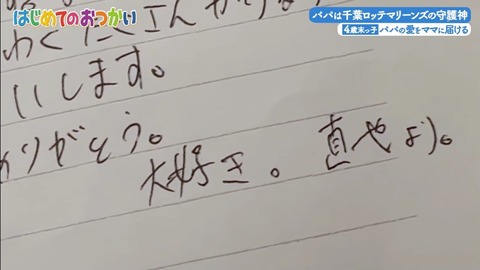 はじめてのおつかい
パパは千葉ロッテマリーンズの守護神
4歳末っ子 パパの愛をママに届ける
わくたさんから
いします。
ありがとう。
大好き。真也より。